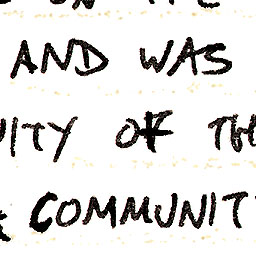 AND WAS
NITY OF TH
COMMUNIT